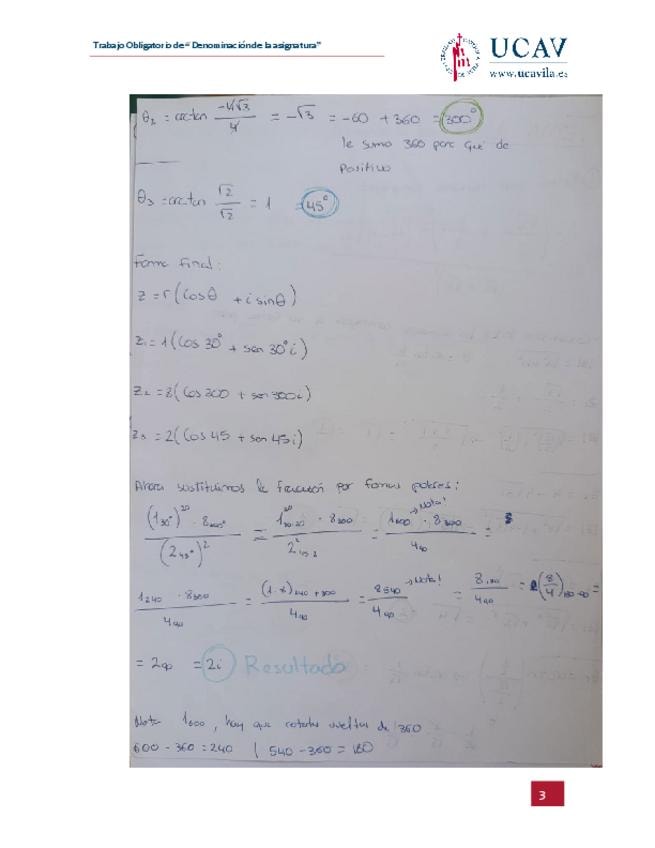 Trabajo Obligatorio de “Denominación de la asignatura”
UCAV
www.ucavila.es
θ₂ = arctan -4√3/4 = -√3 = -60 + 360 = 300°
le sumo 360 para que de
Positivo
θ₃ = arctan √2/√2 = 1 = 45°
Forma final:
z = r(cosθ + i sinθ)
z₁ = 1(Cos 30° + sen 30° i)
z₂ = 8(Cos 300 + sen 300 i)
z₃ = 2(Cos 45 + sen 45 i)
Ahora sustituimos la fracción por formas polares:
(1₃₀°)²⁰ · 8₃₀₀° / (2₄₅°)² = 1²⁰₃₀·₂₀ · 8₃₀₀ / 2²₄₅·₂ = 1₆₀₀ · 8₃₀₀ / 4₉₀ → Nota! =
1₂₄₀ · 8₃₀₀ / 4₉₀ = (1·8)₂₄₀₊₃₀₀ / 4₉₀ = 8₅₄₀ / 4₉₀ → Nota! = 8₁₈₀ / 4₉₀ = (8/4)₁₈₀₋₉₀ =
= 2₉₀ = 2i Resultado
Nota 1₆₀₀, hay que vueltas de 360
600 - 360 = 240 | 540 - 360 = 180
3